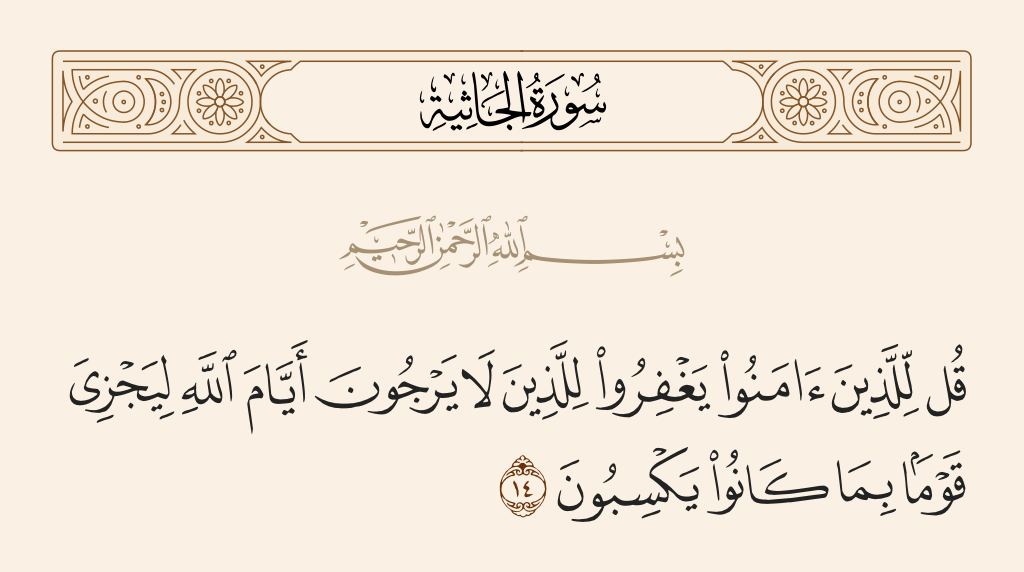 سُورَةُ الجَاثِيَةِ
بِسْمِ ٱللَّهِ ٱلرَّحْمَٰنِ ٱلرَّحِيمِ
قُل لِّلَّذِينَ ءَامَنُوا۟ يَغْفِرُوا۟ لِلَّذِينَ لَا يَرْجُونَ أَيَّامَ ٱللَّهِ لِيَجْزِىَ
قَوْمًۢا بِمَا كَانُوا۟ يَكْسِبُونَ ١٤